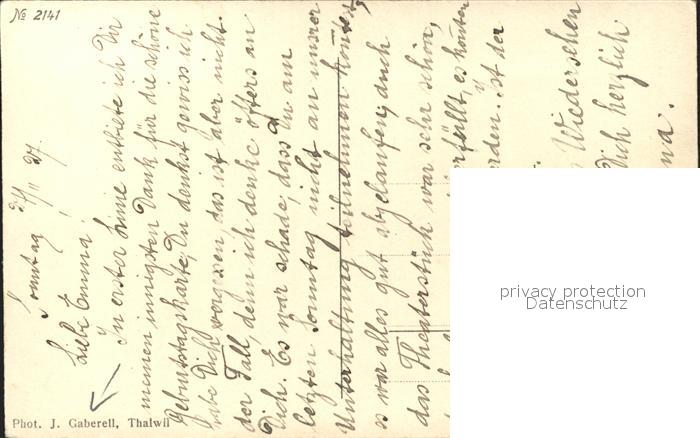 № 2141
Sonntag 27/11 27.
Liebe Emma!
In erster Linie entbiete ich Dir
meinen innigsten Dank für die schöne
Geburtstagskarte, Du denkst gewiss ich
habe Dich vergessen, das ist aber nicht
der Fall, denn ich denke öfters an
Dich. Es war schade, dass Du am
letzten Sonntag nicht an unsrer
Unterhaltung teilnehmen
es war alles gut abgelaufen, auch
das Theaterstück war sehr schön,
es
ist der
Wiedersehen
Dich herzlich
Phot. J. Gaberell, Thalwil
privacy protection
Datenschutz